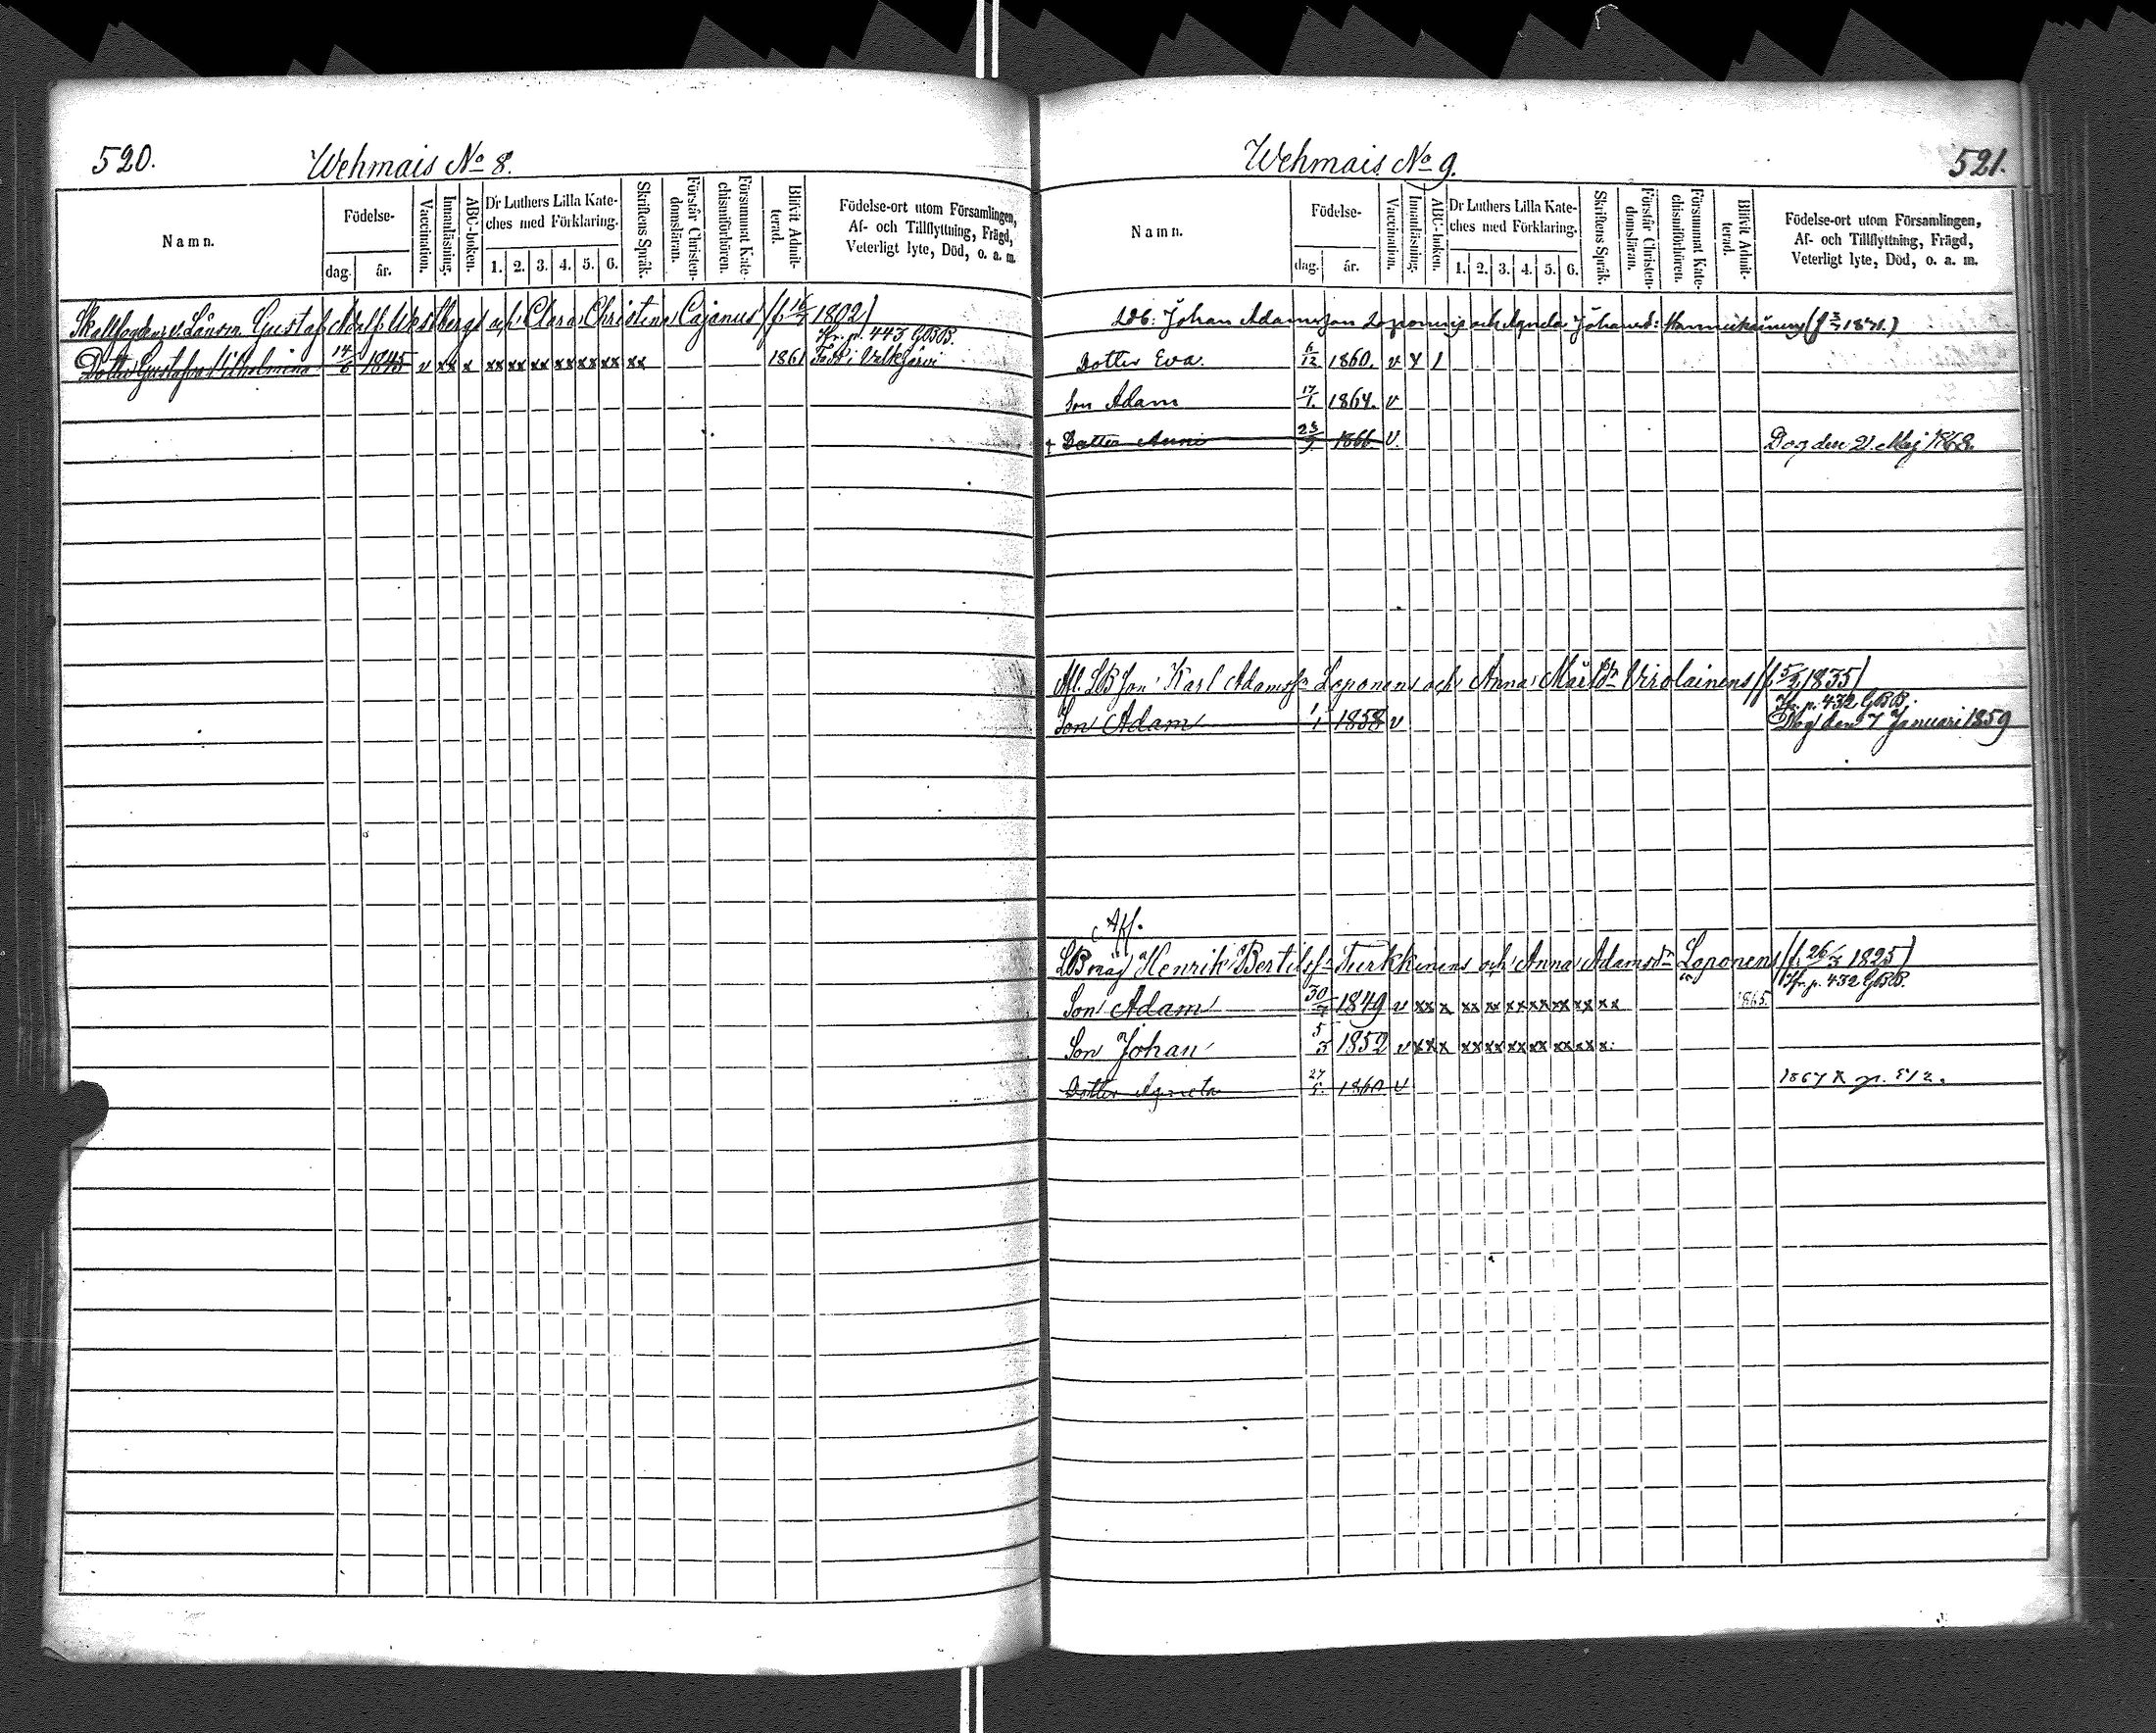 520.
Wehmais No 8.
Namn.
Födelse-
dag.
år.
Vaccination.
Innanläsning.
ABC-boken.
Dr Luthers Lilla Kate-
ches med Förklaring.
1. 2. 3. 4. 5. 6.
Skriftens Språk.
Förstår Christen-
domsläran.
Försummat Kate-
chismiförhören.
Blifvit Admit-
terad.
Födelse-ort utom Församlingen,
Af- och Tillflyttning, Frägd,
Veterligt lyte, Död, o. a. m.
Gustaf Adolf och Clara Christina Cajanus 1802)
p. 443 GBB.
Dotter Gustafva Vilhelmina 14/6 1845 v xx x xx xx xx xx xx xx xx 1861
Wehmais No 9.
521.
Namn.
Födelse-
dag.
år.
Vaccination.
Innanläsning.
ABC-boken.
Dr Luthers Lilla Kate-
ches med Förklaring.
1. 2. 3. 4. 5. 6.
Skriftens Språk.
Förstår Christen-
domsläran.
Försummat Kate-
chismiförhören.
Blifvit Admit-
terad.
Födelse-ort utom Församlingen,
Af- och Tillflyttning, Frägd,
Veterligt lyte, Död, o. a. m.
Johan Adamsson Loponens och Agneta Johansd:
Dotter Eva. 6/12 1860. v x 1
Son Adam 17/1. 1864. v
+ Dotter Anni 1866 v. Dog den 21 Maj 1868.
Afl. LB Son Karl Adamsn Loponens och Anna Mårtdr Virolainens (f. 5/3 1835)
p. 432 GBB.
Son Adam 1/1 1858 v Dog den 7 Januari 1859
Afl.
LB måg Henrik Bertilsn Turkkinens och Anna Adamsdr Loponens (f. 26/3 1825)
p. 432 GBB.
Son Adam 1849 v xx x xx xx xx xx xx xx xx 1865.
Son Johan 5/3 1852 v xx x xx xx xx xx xx xx x.
Dotter Agneta 27/5. 1860 v 1867 p. 512.